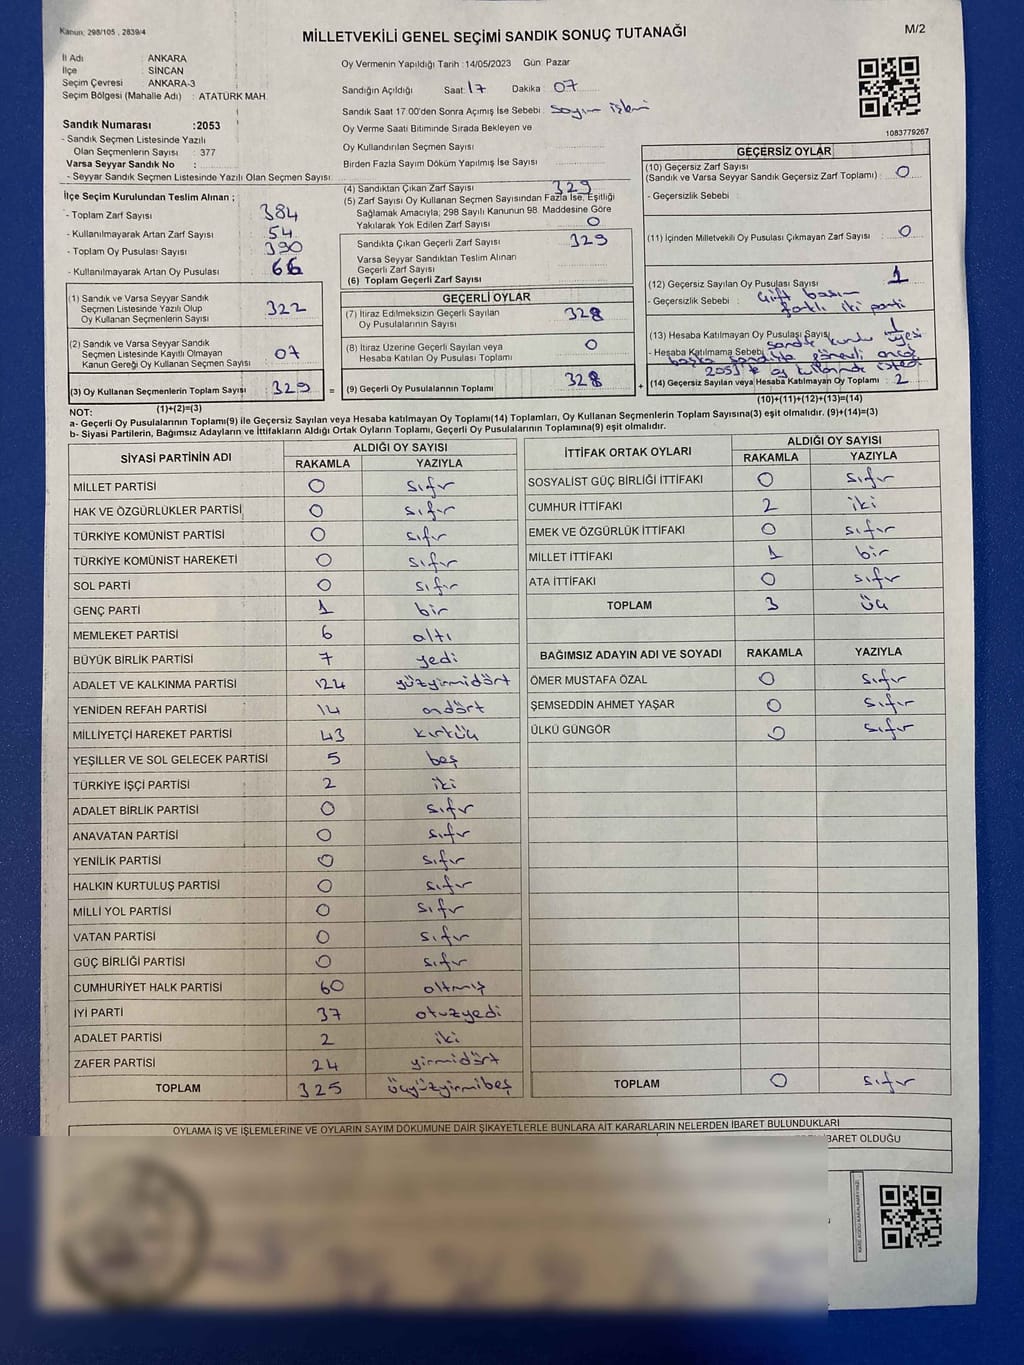 Kanun; 298/105 , 2839/4
MİLLETVEKİLİ GENEL SEÇİMİ SANDIK SONUÇ TUTANAĞI
M/2
İl Adı : ANKARA
İlçe : SİNCAN
Seçim Çevresi : ANKARA-3
Seçim Bölgesi (Mahalle Adı) : ATATÜRK MAH.
Sandık Numarası :2053
- Sandık Seçmen Listesinde Yazılı
Olan Seçmenlerin Sayısı : 377
Varsa Seyyar Sandık No :
- Seyyar Sandık Seçmen Listesinde Yazılı Olan Seçmen Sayısı:
Oy Vermenin Yapıldığı Tarih :14/05/2023 Gün: Pazar
Sandığın Açıldığı Saat: 17 Dakika : 07
Sandık Saat 17.00'den Sonra Açımış İse Sebebi : sayım işlemi
Oy Verme Saati Bitiminde Sırada Bekleyen ve
Oy Kullandırılan Seçmen Sayısı
Birden Fazla Sayım Döküm Yapılmış İse Sayısı
1083779267
İlçe Seçim Kurulundan Teslim Alınan ;
- Toplam Zarf Sayısı : 384
- Kullanılmayarak Artan Zarf Sayısı : 54
- Toplam Oy Pusulası Sayısı : 390
- Kullanılmayarak Artan Oy Pusulası : 66
(1) Sandık ve Varsa Seyyar Sandık
Seçmen Listesinde Yazılı Olup
Oy Kullanan Seçmenlerin Sayısı 322
(2) Sandık ve Varsa Seyyar Sandık
Seçmen Listesinde Kayıtlı Olmayan
Kanun Gereği Oy Kullanan Seçmen Sayısı 07
(3) Oy Kullanan Seçmenlerin Toplam Sayısı 329 =
(1)+(2)=(3)
(4) Sandıktan Çıkan Zarf Sayısı 329
(5) Zarf Sayısı Oy Kullanan Seçmen Sayısından Fazla İse, Eşitliği
Sağlamak Amacıyla; 298 Sayılı Kanunun 98. Maddesine Göre
Yakılarak Yok Edilen Zarf Sayısı 0
Sandıkta Çıkan Geçerli Zarf Sayısı 329
Varsa Seyyar Sandıktan Teslim Alınan
Geçerli Zarf Sayısı
(6) Toplam Geçerli Zarf Sayısı
GEÇERLİ OYLAR
(7) İtiraz Edilmeksizin Geçerli Sayılan
Oy Pusulalarının Sayısı 328
(8) İtiraz Üzerine Geçerli Sayılan veya
Hesaba Katılan Oy Pusulası Toplamı 0
(9) Geçerli Oy Pusulalarının Toplamı 328 +
GEÇERSİZ OYLAR
(10) Geçersiz Zarf Sayısı
(Sandık ve Varsa Seyyar Sandık Geçersiz Zarf Toplamı) : 0
- Geçersizlik Sebebi :
(11) İçinden Milletvekili Oy Pusulası Çıkmayan Zarf Sayısı : 0
(12) Geçersiz Sayılan Oy Pusulası Sayısı : 1
- Geçersizlik Sebebi : Çift basım
farklı iki parti
(13) Hesaba Katılmayan Oy Pusulası Sayısı 1
- Hesaba Katılmama Sebebi sandık kurulu üyesi
başka sandıkta görevli
2053'te oy kullanmak istedi
(14) Geçersiz Sayılan veya Hesaba Katılmayan Oy Toplamı : 2
(10)+(11)+(12)+(13)=(14)
NOT:
a- Geçerli Oy Pusulalarının Toplamı(9) ile Geçersiz Sayılan veya Hesaba katılmayan Oy Toplamı(14) Toplamları, Oy Kullanan Seçmenlerin Toplam Sayısına(3) eşit olmalıdır. (9)+(14)=(3)
b- Siyasi Partilerin, Bağımsız Adayların ve İttifakların Aldığı Ortak Oyların Toplamı, Geçerli Oy Pusulalarının Toplamına(9) eşit olmalıdır.
SİYASİ PARTİNİN ADI ALDIĞI OY SAYISI
RAKAMLA YAZIYLA
MİLLET PARTİSİ 0 sıfır
HAK VE ÖZGÜRLÜKLER PARTİSİ 0 sıfır
TÜRKİYE KOMÜNİST PARTİSİ 0 sıfır
TÜRKİYE KOMÜNİST HAREKETİ 0 sıfır
SOL PARTİ 0 sıfır
GENÇ PARTİ 1 bir
MEMLEKET PARTİSİ 6 altı
BÜYÜK BİRLİK PARTİSİ 7 yedi
ADALET VE KALKINMA PARTİSİ 124 yüzyirmidört
YENİDEN REFAH PARTİSİ 14 ondört
MİLLİYETÇİ HAREKET PARTİSİ 43 kırküç
YEŞİLLER VE SOL GELECEK PARTİSİ 5 beş
TÜRKİYE İŞÇİ PARTİSİ 2 iki
ADALET BİRLİK PARTİSİ 0 sıfır
ANAVATAN PARTİSİ 0 sıfır
YENİLİK PARTİSİ 0 sıfır
HALKIN KURTULUŞ PARTİSİ 0 sıfır
MİLLİ YOL PARTİSİ 0 sıfır
VATAN PARTİSİ 0 sıfır
GÜÇ BİRLİĞİ PARTİSİ 0 sıfır
CUMHURİYET HALK PARTİSİ 60 altmış
İYİ PARTİ 37 otuzyedi
ADALET PARTİSİ 2 iki
ZAFER PARTİSİ 24 yirmidört
TOPLAM 325 üçyüzyirmibeş
İTTİFAK ORTAK OYLARI ALDIĞI OY SAYISI
RAKAMLA YAZIYLA
SOSYALİST GÜÇ BİRLİĞİ İTTİFAKI 0 sıfır
CUMHUR İTTİFAKI 2 iki
EMEK VE ÖZGÜRLÜK İTTİFAKI 0 sıfır
MİLLET İTTİFAKI 1 bir
ATA İTTİFAKI 0 sıfır
TOPLAM 3 üç
BAĞIMSIZ ADAYIN ADI VE SOYADI RAKAMLA YAZIYLA
ÖMER MUSTAFA ÖZAL 0 sıfır
ŞEMSEDDİN AHMET YAŞAR 0 sıfır
ÜLKÜ GÜNGÖR 0 sıfır
TOPLAM 0 sıfır
OYLAMA İŞ VE İŞLEMLERİNE VE OYLARIN SAYIM DÖKÜMÜNE DAİR ŞİKAYETLERLE BUNLARA AİT KARARLARIN NELERDEN İBARET BULUNDUKLARI
İBARET OLDUĞU